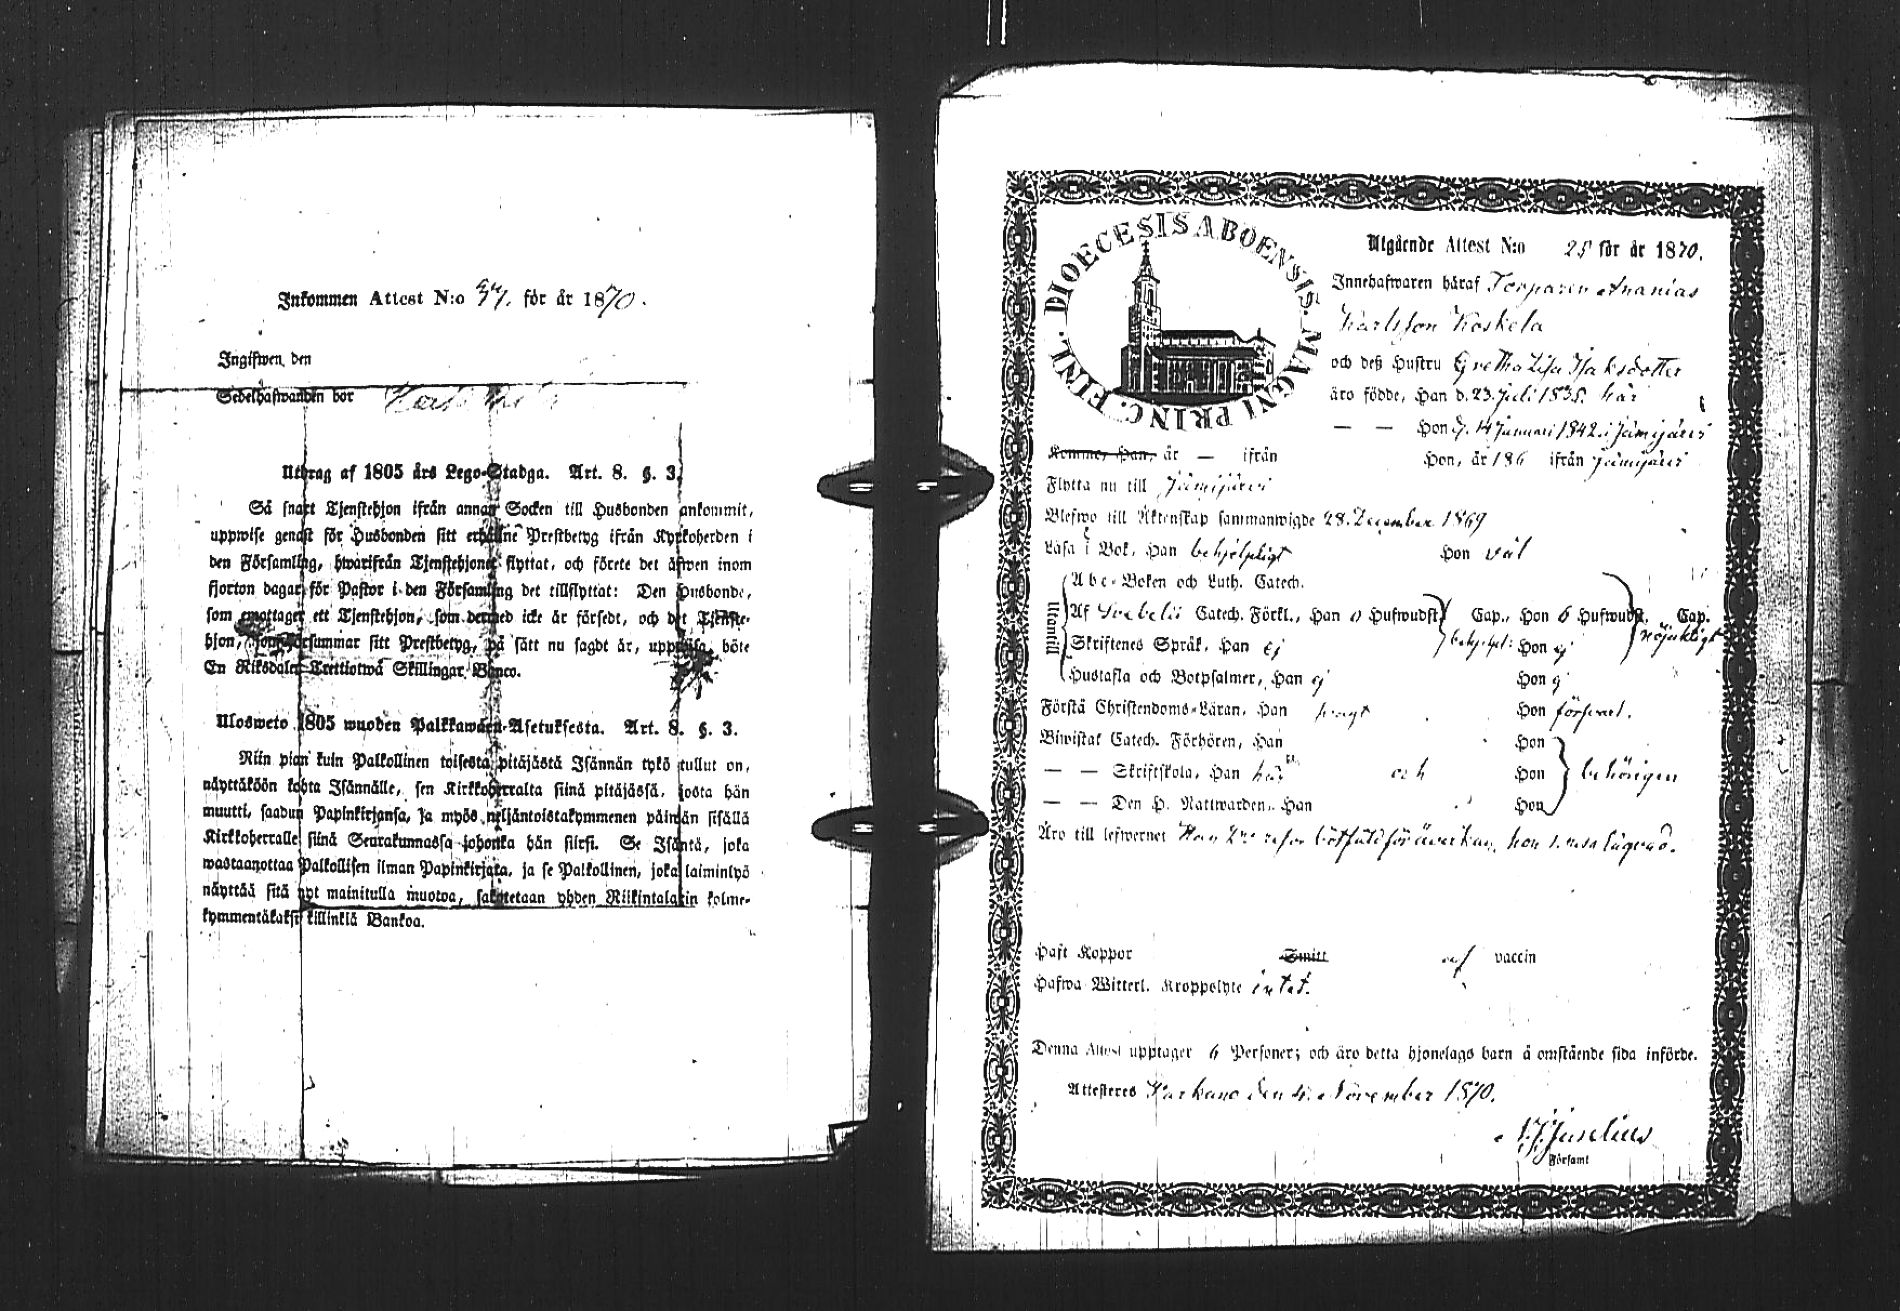 Inkommen Attest N:o 37. för år 1870.
Ingifwen den
Sedelhafwanden bor
Utdrag af 1805 års Lego-Stadga. Art. 8. §. 3.
Så snart Tjenstehjon ifrån annan Socken till Husbonden ankommit,
uppwise genast för Husbonden sitt erhållne Prestbetyg ifrån Kyrkoherden i
den Församling, hwarifrån Tjenstehjonet flyttat, och förete det äfwen inom
fjorton dagar för Pastor i den Församling det tillflyttat: Den Husbonde,
som emottager ett Tjenstehjon, som dermed icke är försedt, och det Tjenste-
hjon, som försummar sitt Prestbetyg, på sätt nu sagdt är, uppwisa, böte
En Riksdaler Trettiotwå Skillingar Banco.
Ulosweto 1805 wuoden Palkkawäen-Asetuksesta. Art. 8. §. 3.
Niin pian kuin Palkollinen toisesta pitäjästä Isännän tykö tullut on,
näyttäköön kohta Isännälle, sen Kirkkoherralta siinä pitäjässä, josta hän
muutti, saadun Papinkirjansa, ja myös neljäntoistakymmenen päiwän sisällä
Kirkkoherralle siinä Seurakunnassa johonka hän siirsi. Se Isäntä, joka
wastaanottaa Palkollisen ilman Papinkirjata, ja se Palkollinen, joka laiminlyö
näyttää sitä nyt mainitulla muotoa, sakotetaan yhden Riikintalarin kolme-
kymmentäkaksi killinkiä Bankoa.
DIOECESIS ABOENSIS. MAGNI PRINC. FINL.
Utgående Attest N:o 25 för år 1870.
Innehafwaren häraf Torparen Ananias
Karlsson Koskela
och deß Hustru Gretha Lisa Isaksdotter
äro födde, Han d. 23. Juli 1835. här
— — Hon d. 14 Januari 1842. i Jämijärvi
Kommer Han, år — ifrån Hon, år 186 ifrån Jämijärvi
Flytta nu till Jämijärvi
Blefwo till Äktenskap sammanwigde 28. December 1869
Läsa i Bok, Han behjelpligt Hon väl
Utantill
Abc-Boken och Luth. Catech.
Af Svebelii Catech. Förkl., Han 0 Hufwudst. Cap., Hon 6 Hufwudst. Cap.
behjelpl: nöjaktigt
Skriftenes Språk, Han ej Hon ej
Hustafla och Botpsalmer, Han ej Hon ej
Förstå Christendoms-Läran, Han svagt Hon försvarl.
Biwistat Catech. Förhören, Han Hon
— — Skriftskola, Han här och Hon behörigen
— — Den H. Nattwarden, Han Hon
Äro till lefwernet Han botfäld för åverkan, hon
Haft Koppor Smitt af vaccin
Hafwa Witterl. Kroppslyte intet.
Denna Attest upptager 6 Personer; och äro detta hjonelags barn å omstående sida införde.
Attesteras Parkano den 4. November 1870.
Juselius
Församl